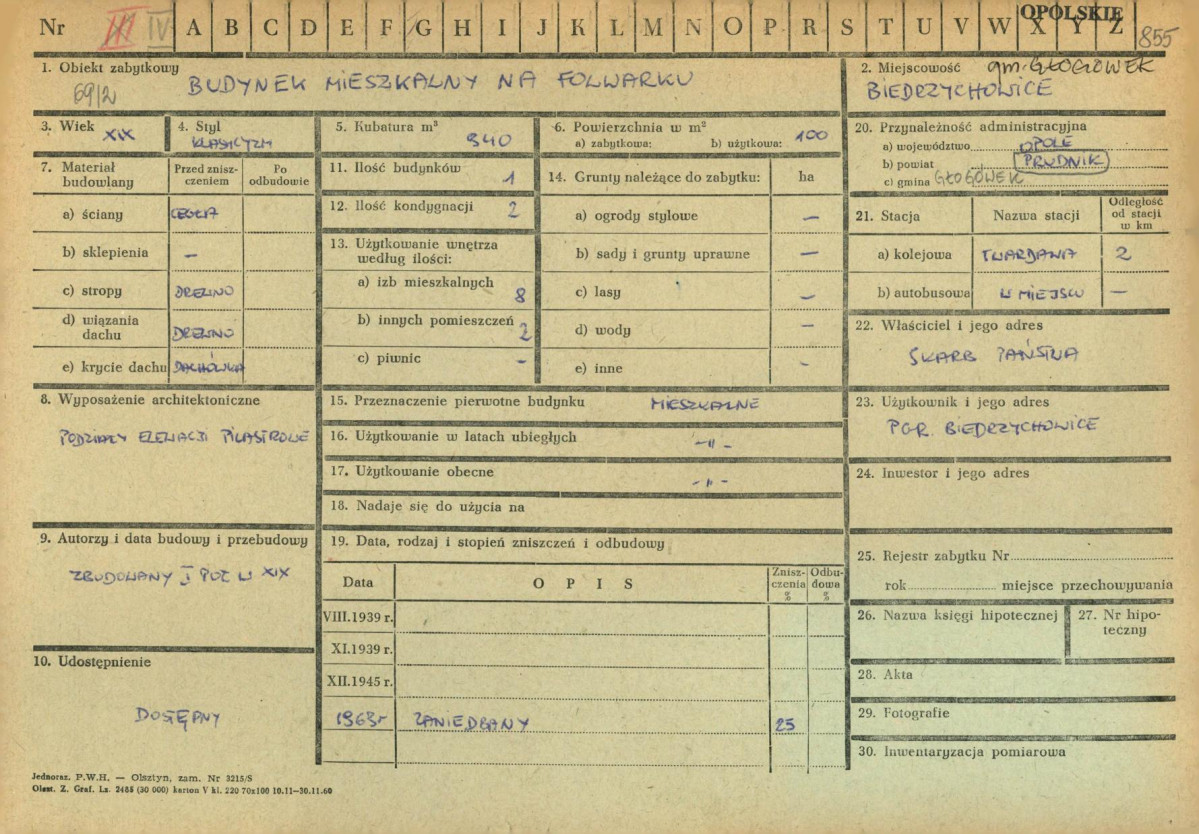 Nr III IV A B C D E F G H I J K L M N O P R S T U V W X Y Z
OPOLSKIE
855
1. Obiekt zabytkowy
69/2
BUDYNEK MIESZKALNY NA FOLWARKU
2. Miejscowość gm. GŁOGÓWEK
BIEDRZYCHOWICE
3. Wiek
XIX
4. Styl
KLASYCYZM
5. Kubatura m³
940
6. Powierzchnia w m²
a) zabytkowa: b) użytkowa: 100
7. Materiał budowlany
Przed zniszczeniem
Po odbudowie
a) ściany CEGŁA
b) sklepienia —
c) stropy DREWNO
d) wiązania dachu DREWNO
e) krycie dachu DACHÓWKA
8. Wyposażenie architektoniczne
PODZIAŁY ELEWACJI PILASTROWE
9. Autorzy i data budowy i przebudowy
ZBUDOWANY I POŁ W XIX
10. Udostępnienie
DOSTĘPNY
11. Ilość budynków 1
12. Ilość kondygnacji 2
13. Użytkowanie wnętrza
według ilości:
a) izb mieszkalnych 8
b) innych pomieszczeń 2
c) piwnic -
14. Grunty należące do zabytku: ha
a) ogrody stylowe —
b) sady i grunty uprawne —
c) lasy —
d) wody —
e) inne -
15. Przeznaczenie pierwotne budynku MIESZKALNE
16. Użytkowanie w latach ubiegłych -"-
17. Użytkowanie obecne -"-
18. Nadaje się do użycia na
19. Data, rodzaj i stopień zniszczeń i odbudowy
Data OPIS Zniszczenia % Odbudowa %
VIII.1939 r.
XI.1939 r.
XII.1945 r.
1963r ZANIEDBANY 25
20. Przynależność administracyjna
a) województwo OPOLE
b) powiat PRUDNIK
c) gmina GŁOGÓWEK
21. Stacja Nazwa stacji Odległość od stacji w km
a) kolejowa TWARDAWA 2
b) autobusowa W MIEJSCU —
22. Właściciel i jego adres
SKARB PAŃSTWA
23. Użytkownik i jego adres
PGR. BIEDRZYCHOWICE
24. Inwestor i jego adres
25. Rejestr zabytku Nr
rok miejsce przechowywania
26. Nazwa księgi hipotecznej
27. Nr hipoteczny
28. Akta
29. Fotografie
30. Inwentaryzacja pomiarowa
Jednoraz. P.W.H. — Olsztyn, zam. Nr 3215/S
Olszt. Z. Graf. Lz. 2488 (30 000) karton V kl. 220 70x100 10.11—30.11.60